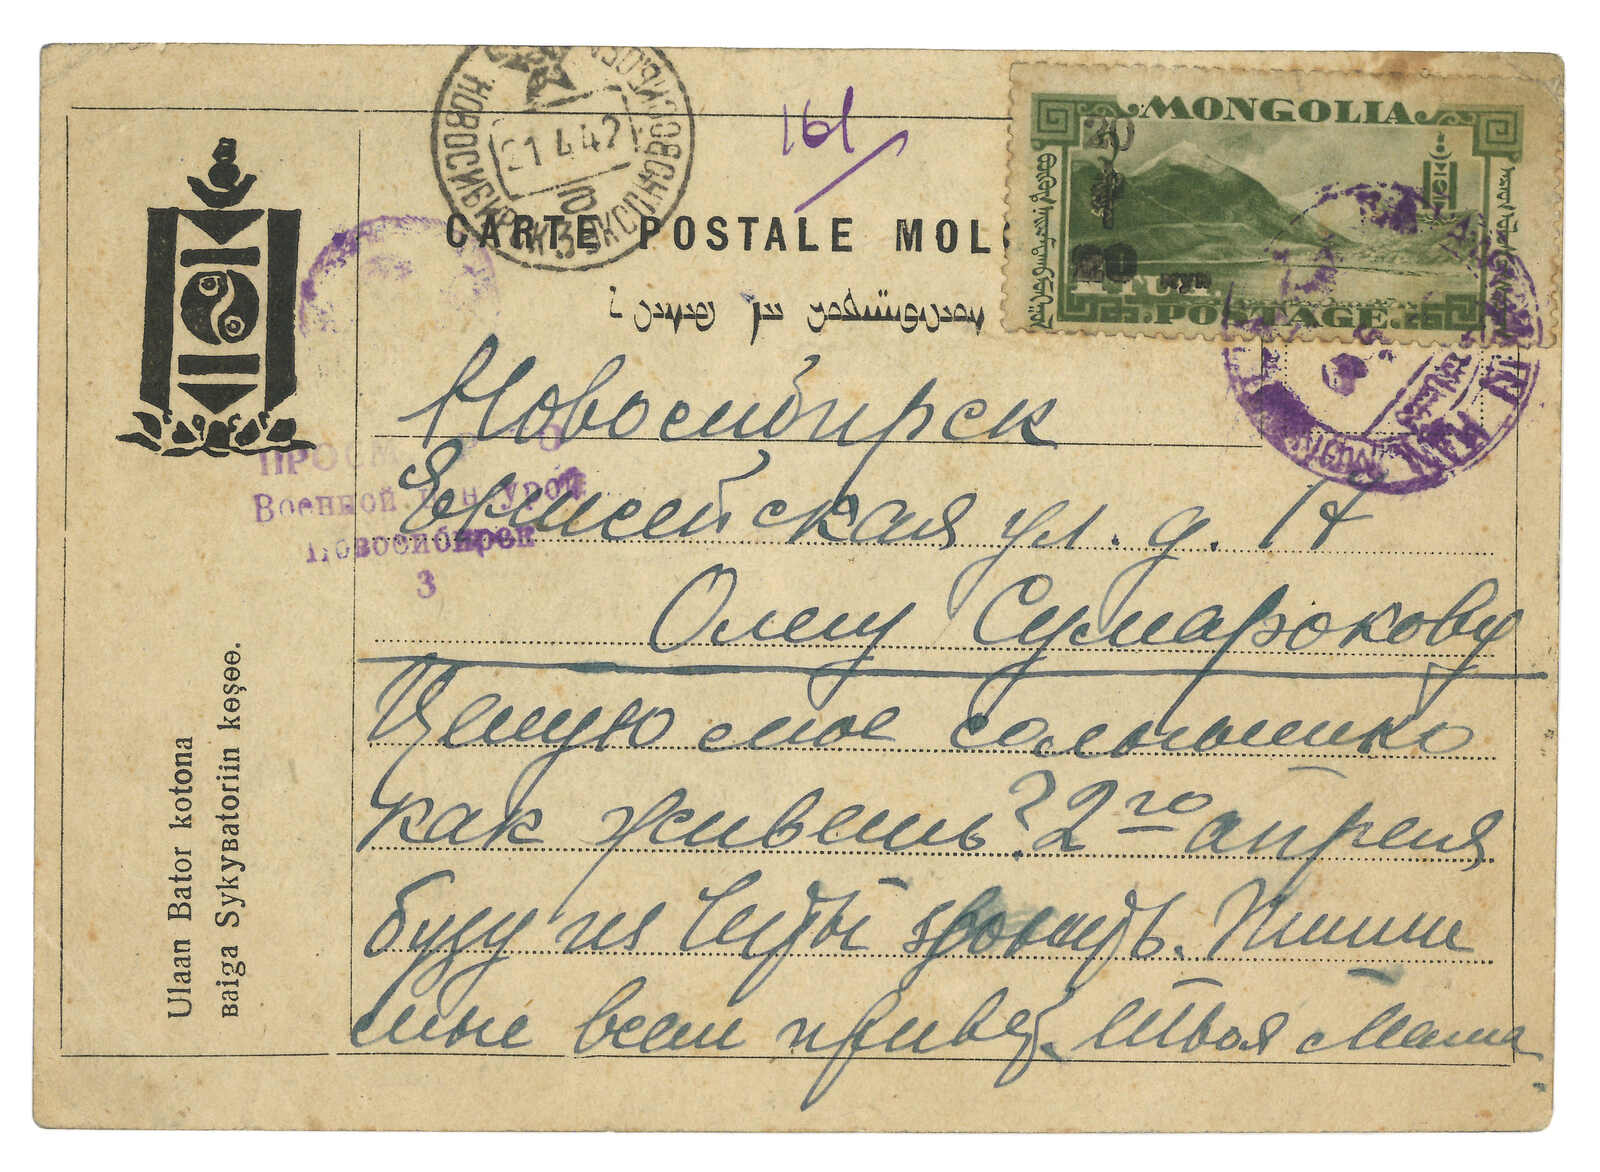 НОВОСИБИРСК
21 4 42
10
161
CARTE POSTALE MOL
MONGOLIA
20
20
POSTAGE
Новосибирск
Енисейская ул. д. 17
Олегу Сумарокову
Целую мое солнышко
как живешь? 2го апреля
буду из Читы звонить. Пиши
мне всем привет. Твоя Мама
ПРОСМ
Военной Цензурой
Новосибирск
3
Ulaan Bator kotona
вaiga Sykyвatoriin kөşөө.